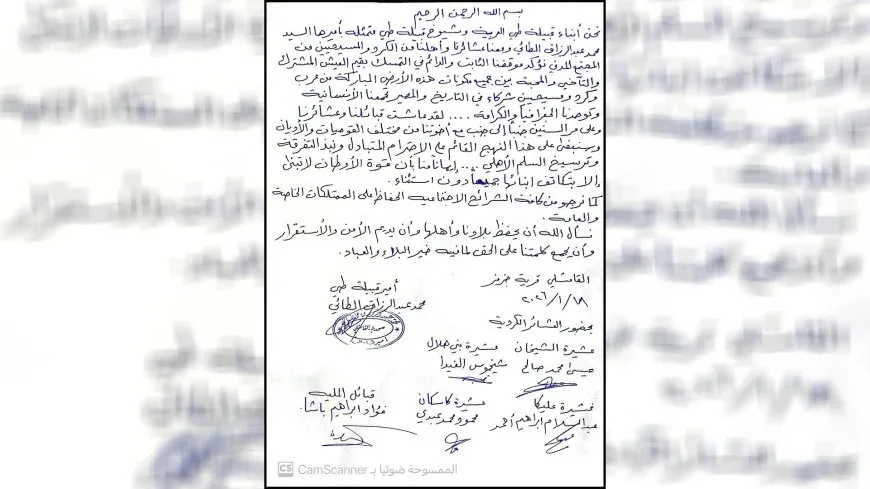 بسم الله الرحمن الرحيم
نحن أبناء قبيلة طي العربية وشيوخ قبيلة طي ممثلة بأميرها السيد
محمد عبدالرزاق الطائي ومعنا عشائرنا وأهلنا من الكرد والمسيحيين من
المجتمع المدني نؤكد موقفنا الثابت والدائم في التمسك بقيم العيش المشترك
والتآخي والمحبة بين جميع مكونات هذه الأرض المباركة من عرب
وكرد ومسيحيين شركاء في التاريخ والمصير تجمعنا الأنسانية
وتوحدنا الجغرافيا والكرامة .... لقد عاشت قبائلنا وعشائرنا
وعلى مر السنين جنباً إلى جنب مع أخوتنا من مختلف القوميات والأديان
وسنبقى على هذا النهج القائم على الاحترام المتبادل ونبذ التفرقة
وترسيخ السلم الأهلي .... إيماناً منا بأن قوة الأوطان لا تبنى
إلا بتكاتف ابنائها جميعاً دون استثناء .
كما نرجو من كافة الشرائح الاجتماعية الحفاظ على الممتلكات الخاصة
والعامة .
نسأل الله أن يحفظ بلادنا وأهلها وأن يديم الأمن والأستقرار
وأن يجمع كلمتنا على الحق لمافيه خير البلاد والعباد.
القامشلي قرية جرمز
٢٠٢٦/١/١٨
أمير قبيلة طي
محمد عبدالرزاق الطائي
بحضور العشائر الكردية
عشيرة الشيخان عشيرة بني هلال
عيسى احمد صالح شيخموس الفيدا
عشيرة عليكا عشيرة كاسكان قبائل الملية
عبدالسلام ابراهيم أحمد محمود محمد عبدي فؤاد ابراهيم باشا.
CS CamScanner الممسوحة ضوئيا بـ